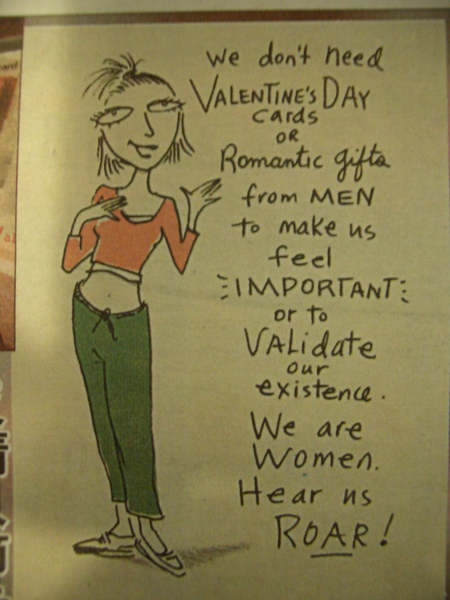 We don't need
VALENTINE'S DAY
cards
OR
Romantic gifts
from MEN
to make us
feel
IMPORTANT
or to
VALidate
our
existence.
We are
Women.
Hear us
ROAR!